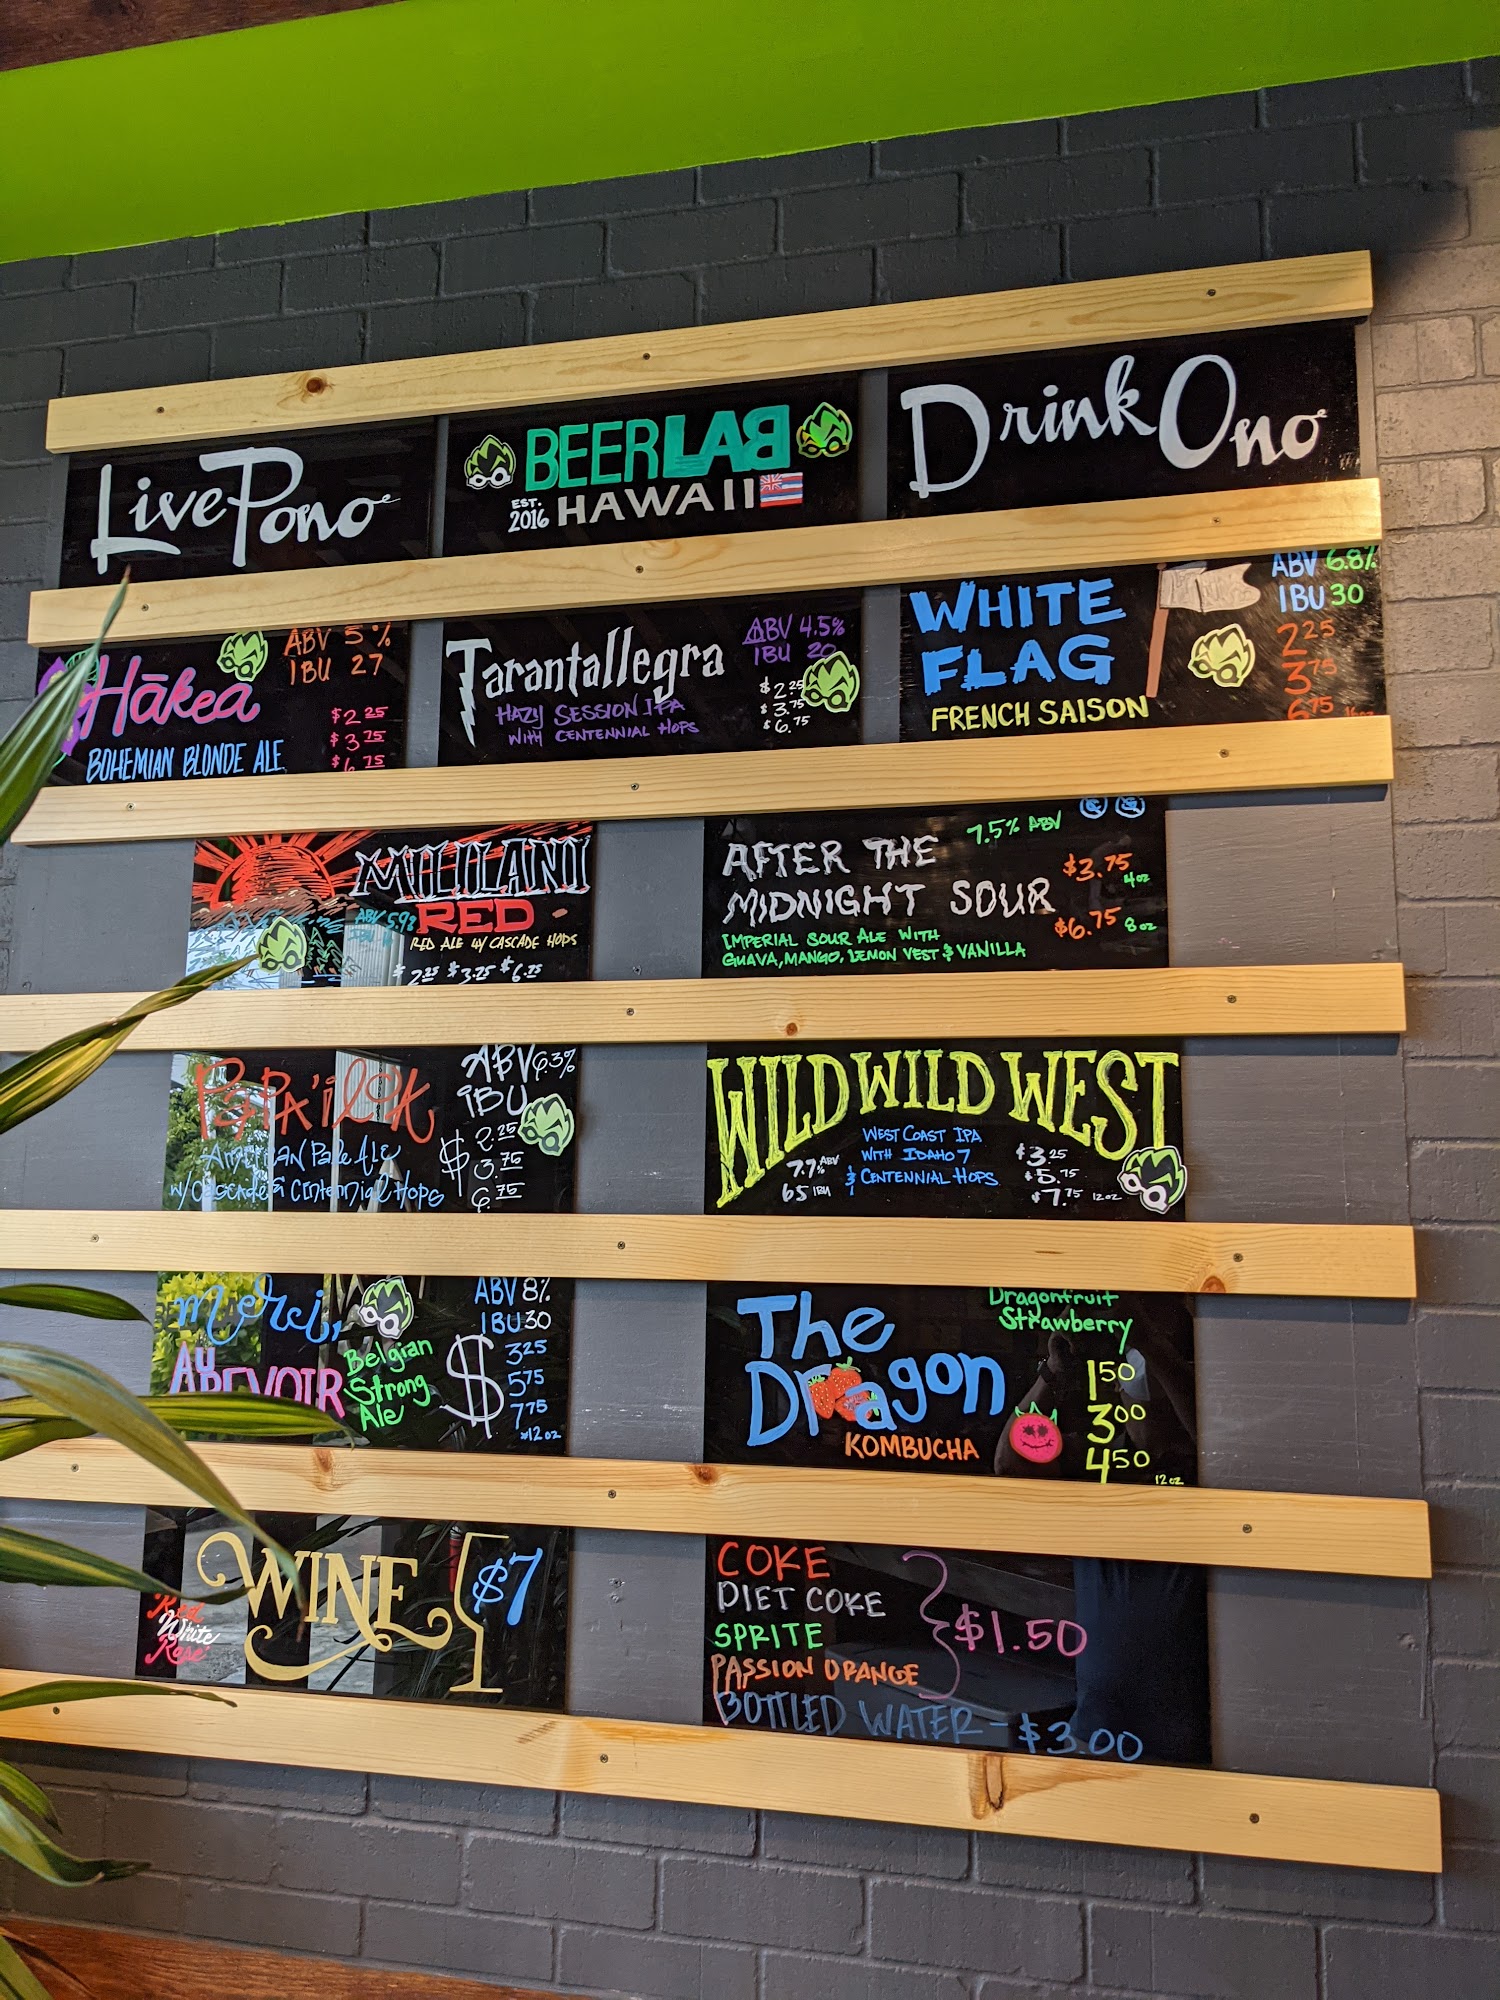 Live Pono
BEERLAB
EST. 2016 HAWAII
Drink Ono
Hākea
BOHEMIAN BLONDE ALE
ABV 5%
IBU 27
$2.25
$3.75
$6.75
Tarantallegra
HAZY SESSION IPA
WITH CENTENNIAL HOPS
ABV 4.5%
IBU 20
$2.25
$3.75
$6.75
WHITE
FLAG
FRENCH SAISON
ABV 6.8%
IBU 30
2.25
3.75
6.75
MILILANI
RED
ABV 5.9%
RED ALE W/ CASCADE HOPS
$2.25 $3.75 $6.75
AFTER THE
MIDNIGHT SOUR
IMPERIAL SOUR ALE WITH
GUAVA, MANGO, LEMON VEST & VANILLA
7.5% ABV
$3.75 4oz
$6.75 8oz
PAPA'iLOA
American Pale Ale
w/Cascade & Centennial Hops
ABV 6.3%
iBU
$ 2.25
3.75
6.75
WILD WILD WEST
7.7% ABV
65 IBU
WEST COAST IPA
WITH IDAHO 7
& CENTENNIAL HOPS
$3.25
$5.75
$7.75 12oz
merci,
AU REVOIR
Belgian
Strong
Ale
ABV 8%
IBU 30
$ 3.25
5.75
7.75
*12oz
The
Dragon
KOMBUCHA
Dragonfruit
Strawberry
1.50
3.00
4.50
12oz
WINE
$7
Red
White
Rosé
COKE
DIET COKE
SPRITE
PASSION ORANGE
$1.50
BOTTLED WATER - $3.00